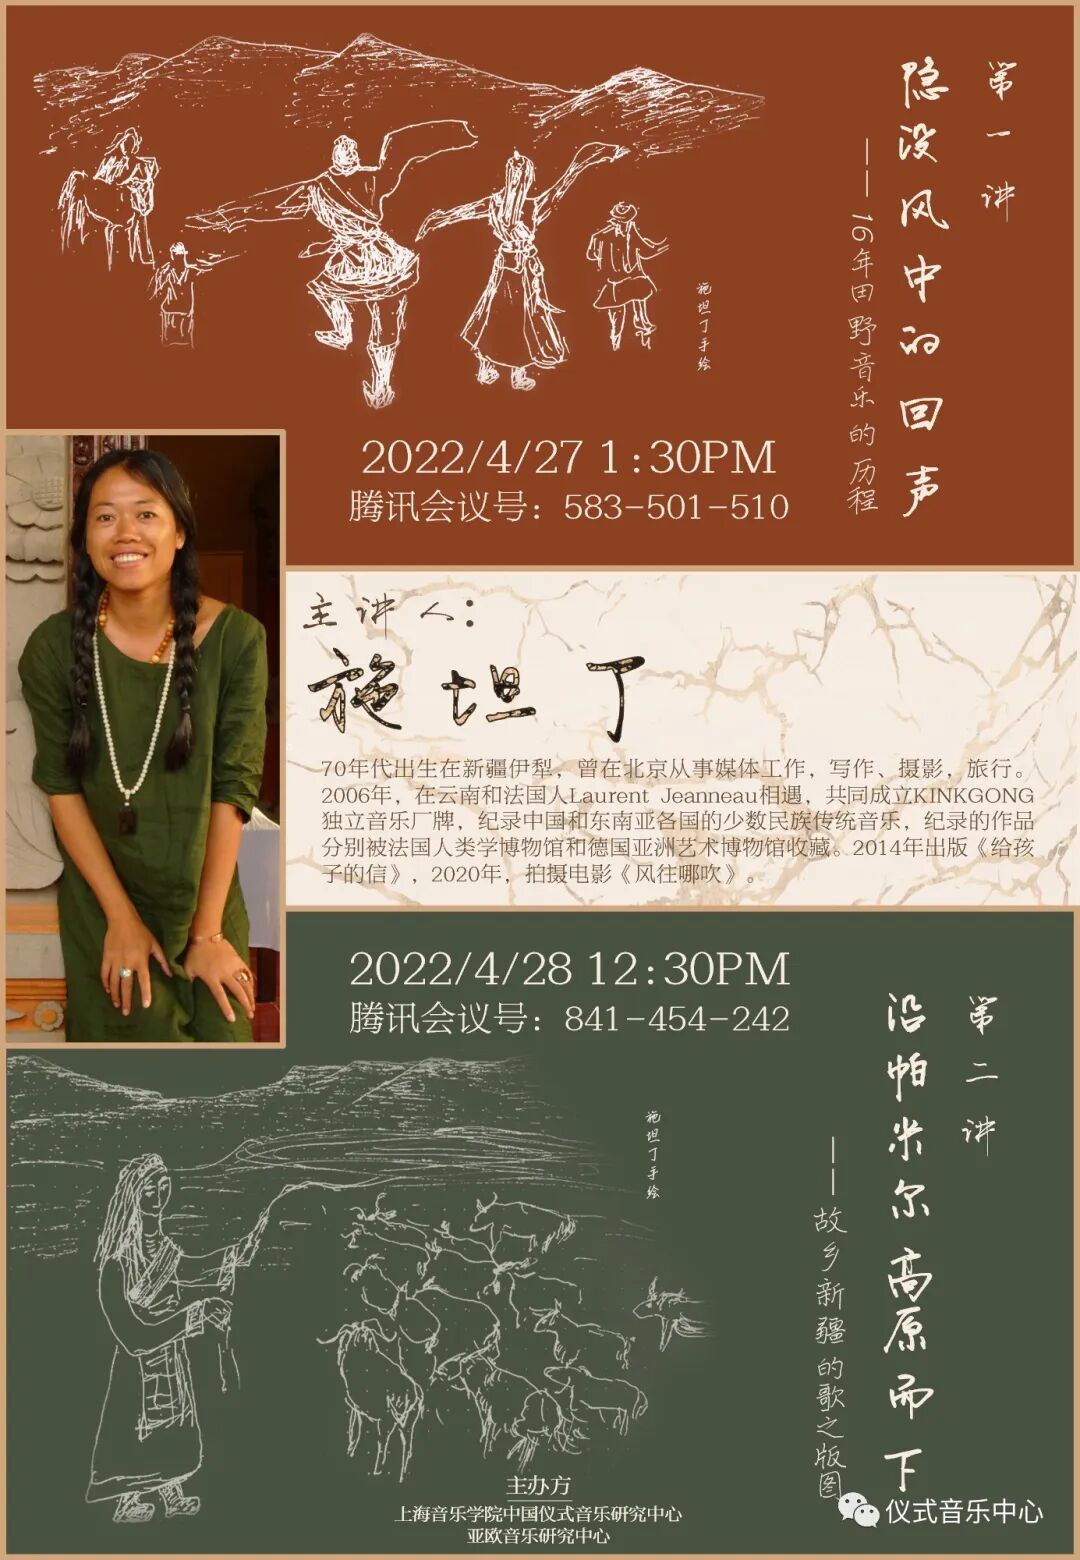 第一讲
隐没风中的回声
——16年田野音乐的历程
施坦丁手绘
2022/4/27 1:30PM
腾讯会议号：583-501-510
主讲人：
施坦丁
70年代出生在新疆伊犁，曾在北京从事媒体工作，写作、摄影，旅行。
2006年，在云南和法国人Laurent Jeanneau相遇，共同成立KINKGONG
独立音乐厂牌，纪录中国和东南亚各国的少数民族传统音乐，纪录的作品
分别被法国人类学博物馆和德国亚洲艺术博物馆收藏。2014年出版《给孩
子的信》，2020年，拍摄电影《风往哪吹》。
2022/4/28 12:30PM
腾讯会议号：841-454-242
第二讲
沿帕米尔高原而下
——故乡新疆的歌之版图
施坦丁手绘
主办方
上海音乐学院中国仪式音乐研究中心
亚欧音乐研究中心
仪式音乐中心